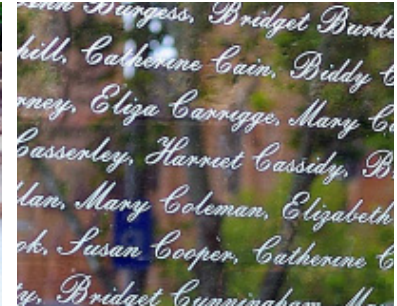 Ann Burgess, Bridget Burke
hill, Catherine Cain, Biddy C
rney, Eliza Carrigge, Mary Ca
Casserley, Harriet Cassidy, B
llan, Mary Coleman, Elizabeth
ok, Susan Cooper, Catherine C
ty, Bridget Cunningham, M